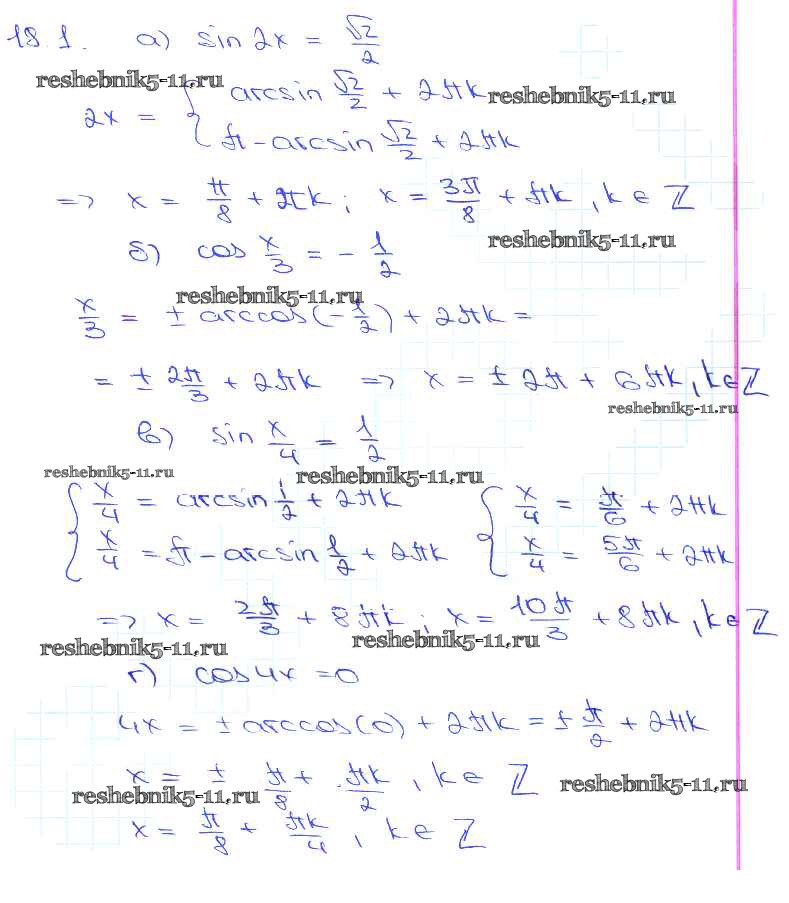 18.1. а) sin 2x = √2/2
reshebnik5-11.ru
2x = { arcsin √2/2 + 2πk
reshebnik5-11.ru
π - arcsin √2/2 + 2πk
=> x = π/8 + πk; x = 3π/8 + πk, k ∈ Z
reshebnik5-11.ru
б) cos x/3 = - 1/2
reshebnik5-11.ru
x/3 = ± arccos(-1/2) + 2πk =
= ± 2π/3 + 2πk => x = ± 2π + 6πk, k ∈ Z
reshebnik5-11.ru
в) sin x/4 = 1/2
reshebnik5-11.ru reshebnik5-11.ru
{ x/4 = arcsin 1/2 + 2πk { x/4 = π/6 + 2πk
x/4 = π - arcsin 1/2 + 2πk x/4 = 5π/6 + 2πk
=> x = 2π/3 + 8πk; x = 10π/3 + 8πk, k ∈ Z
reshebnik5-11.ru reshebnik5-11.ru
г) cos 4x = 0
4x = ± arccos(0) + 2πk = ± π/2 + 2πk
x = ± π/8 + πk/2, k ∈ Z
reshebnik5-11.ru reshebnik5-11.ru
x = π/8 + πk/4, k ∈ Z